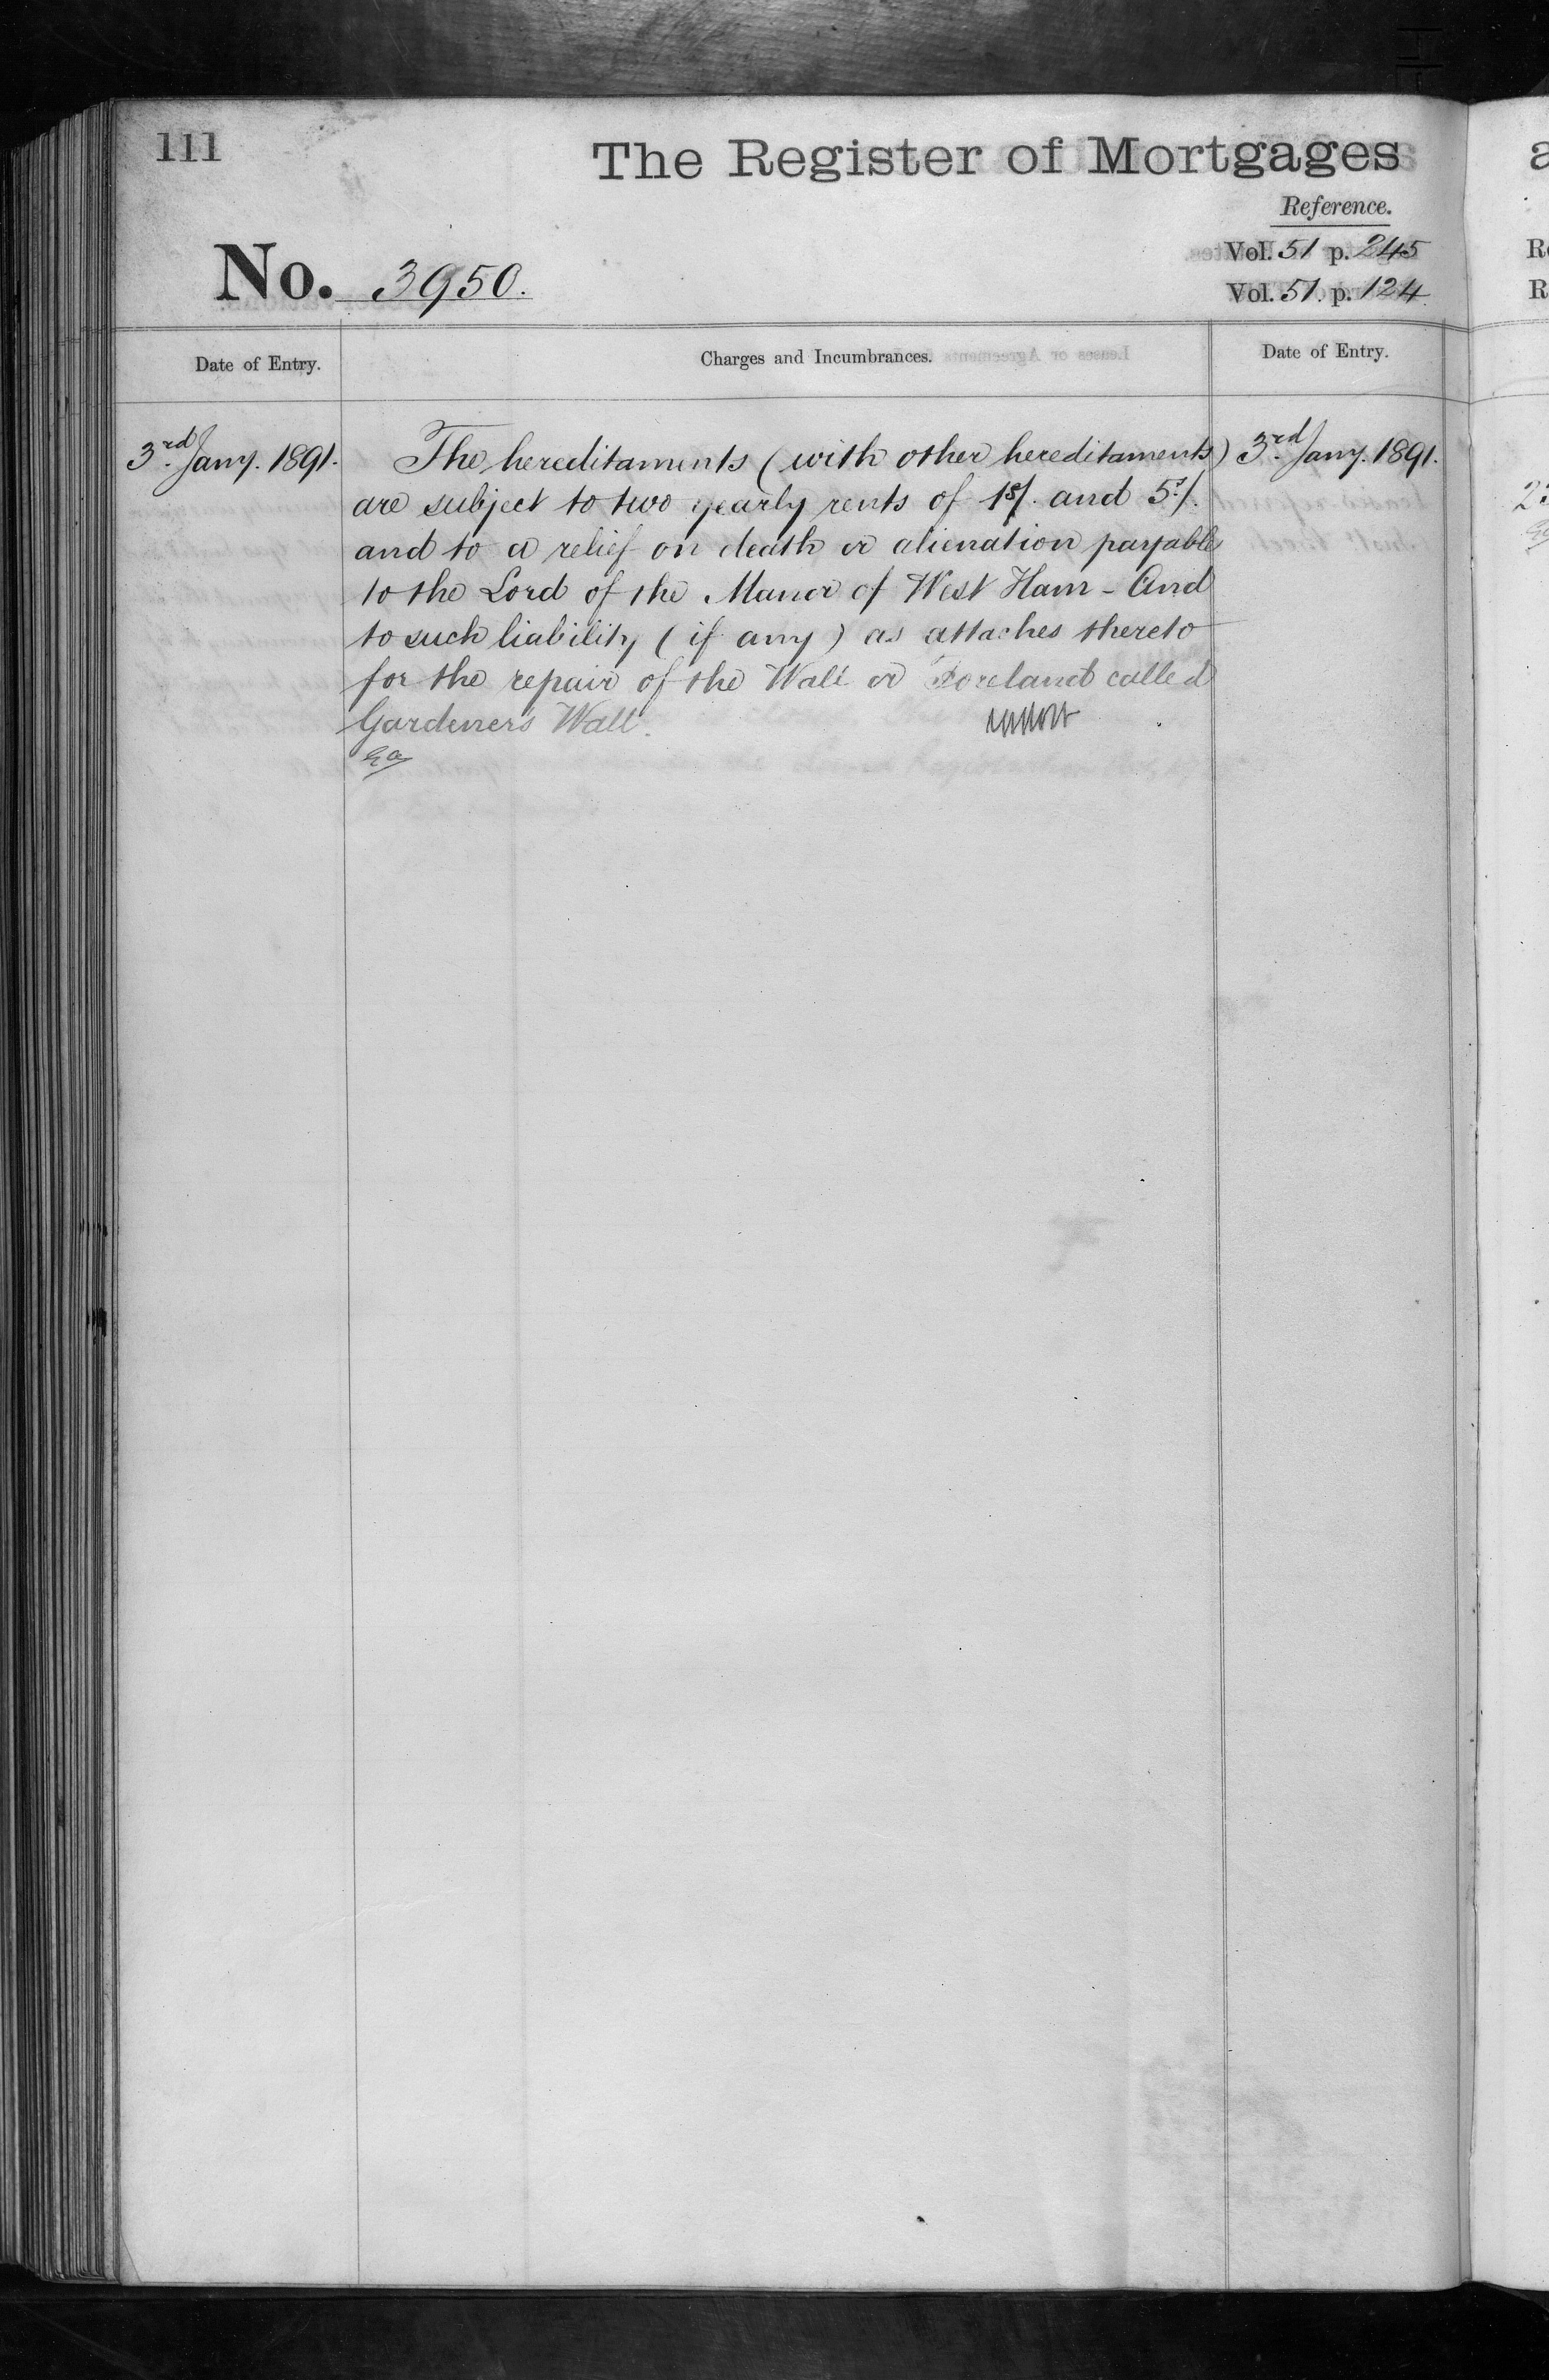 111
The Register of Mortgages
Reference.
Vol. 51 p. 245
Vol. 51. p. 124
No. 3950.
Date of Entry.
Charges and Incumbrances.
Date of Entry.
3rd Jany. 1891.
The hereditaments (with other hereditaments)
are subject to two yearly rents of 1s/. and 5s/.
and to a relief on death or alienation payable
to the Lord of the Manor of West Ham - And
to such liability (if any) as attaches thereto
for the repair of the Wall or Foreland called
Gardener's Wall.
3rd Jany. 1891.